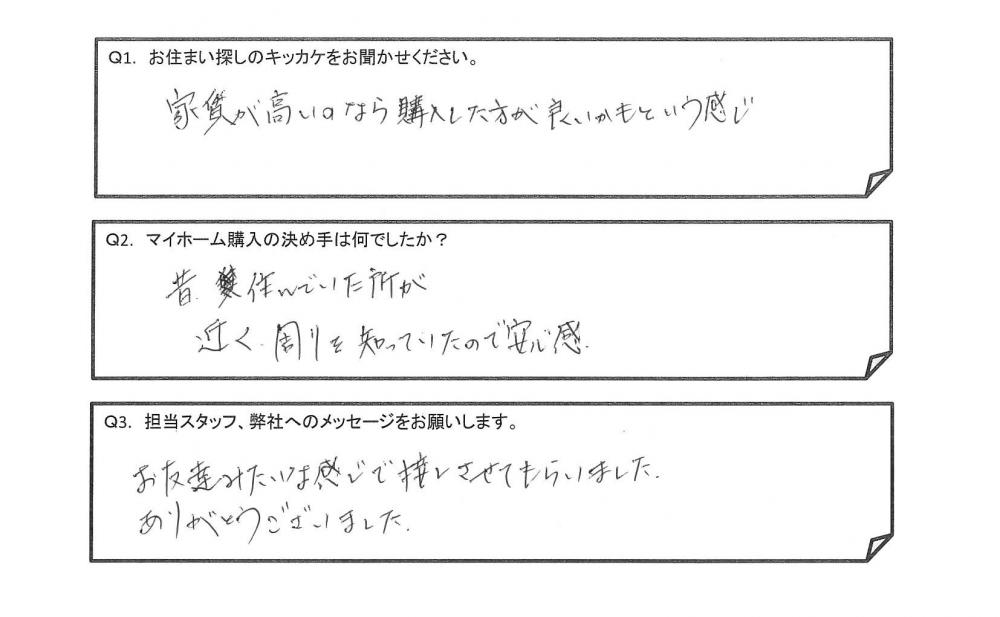 Q1. お住まい探しのキッカケをお聞かせください。
家賃が高いのなら購入した方が良いかもという感じ
Q2. マイホーム購入の決め手は何でしたか？
昔 住んでいた所が
近く、周りを知っていたので安心感.
Q3. 担当スタッフ、弊社へのメッセージをお願いします。
お友達みたいな感じで接しさせてもらいました.
ありがとうございました.